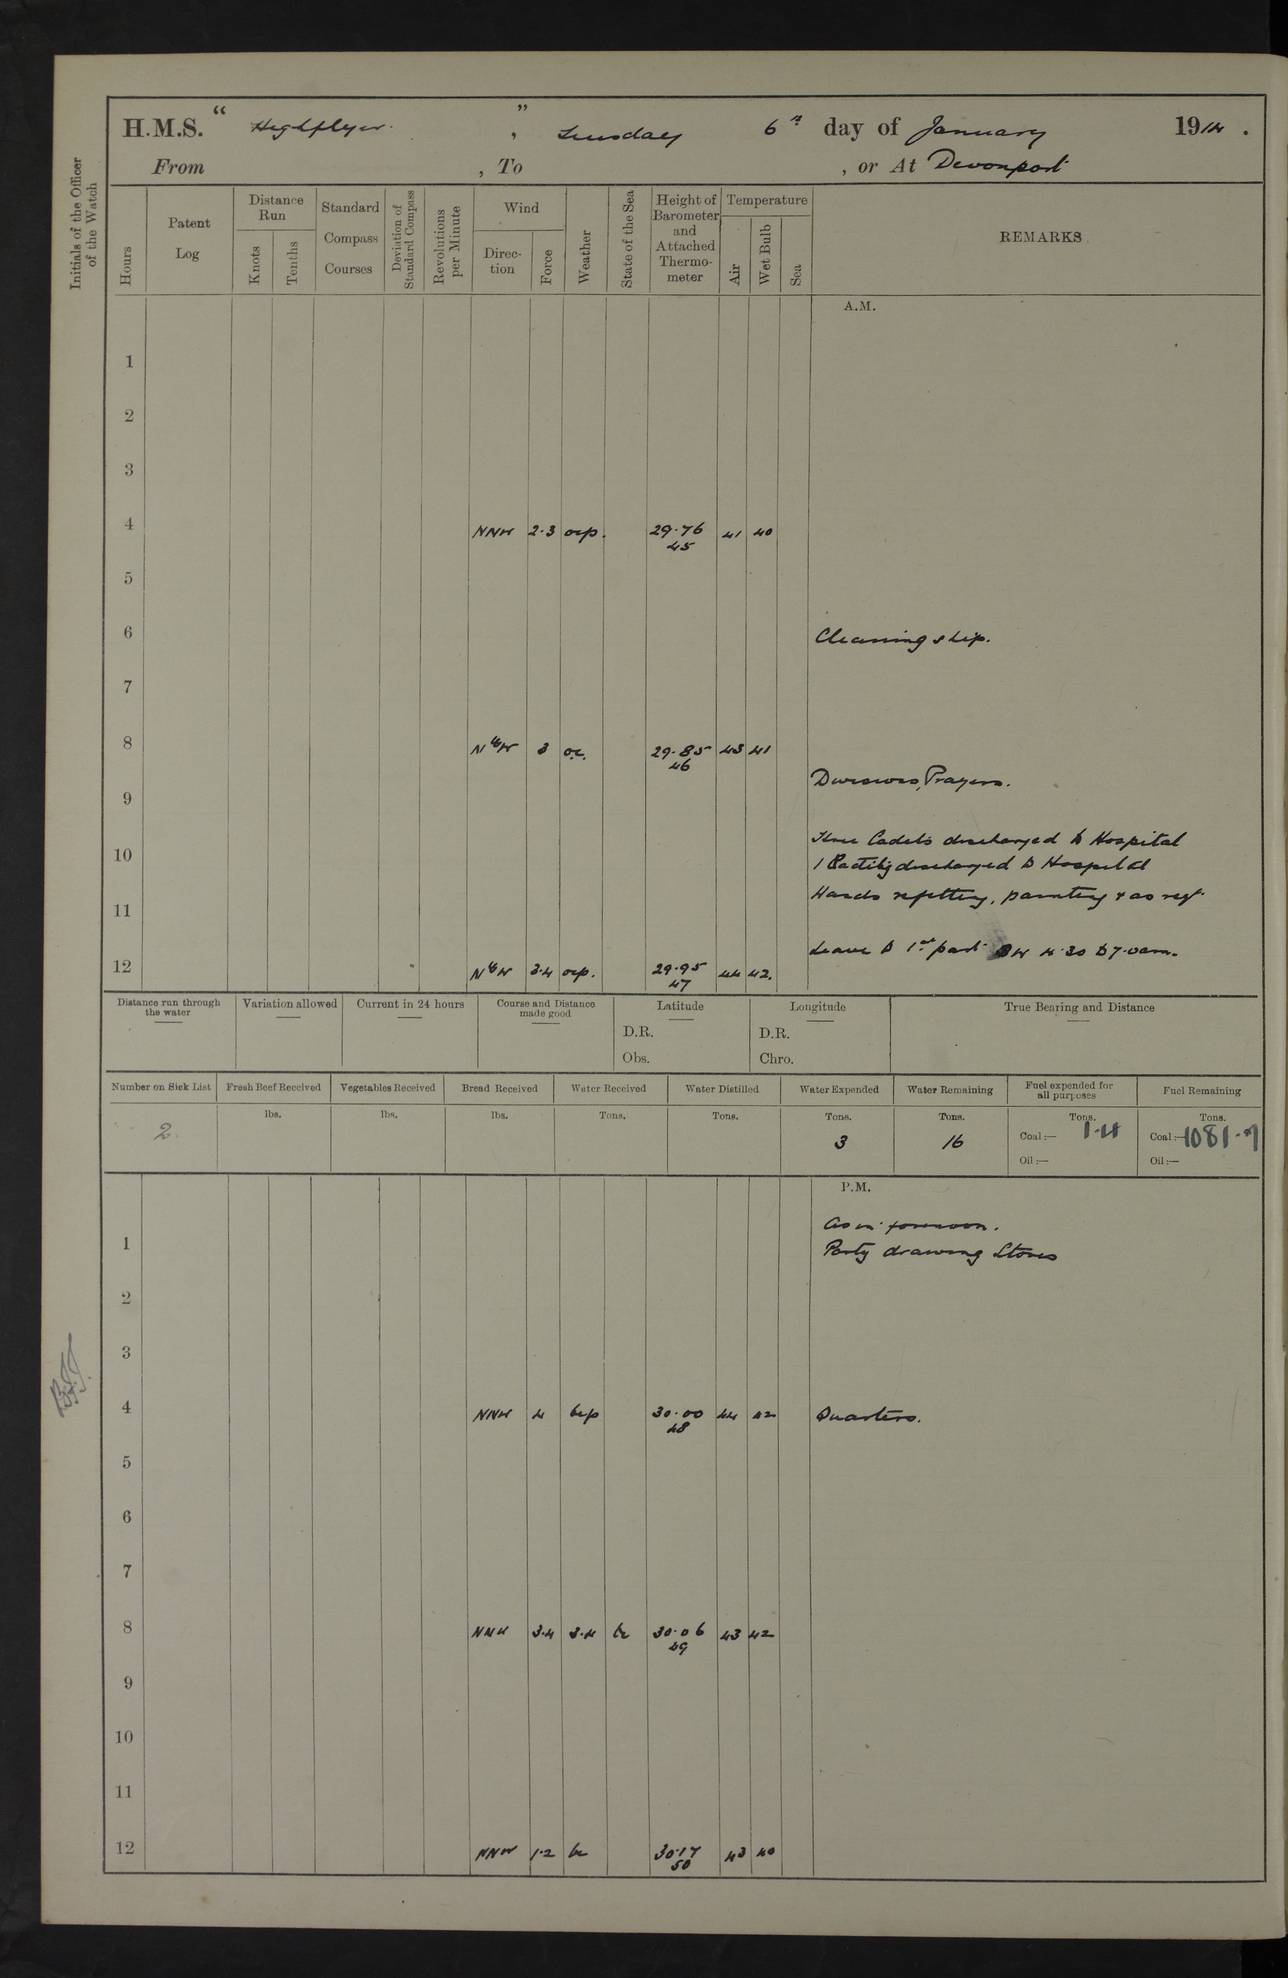 H.M.S. “ Highflyer. ” , Tuesday 6th day of January 1914 .
From , To , or At Devonport
Initials of the Officer of the Watch
Hours
Patent Log
Distance Run
Knots
Tenths
Standard Compass Courses
Deviation of Standard Compass
Revolutions per Minute
Wind
Direc-tion
Force
Weather
State of the Sea
Height of Barometer and Attached Thermo-meter
Temperature
Air
Wet Bulb
Sea
REMARKS
A.M.
1
2
3
4 NNW 2.3 ocp. 29.76 41 40
45
5
6 Cleaning ship.
7
8 NbW 3 oc. 29.85 43 41
46
Divisions, Prayers.
9
Three Cadets discharged to Hospital
10 1 discharged to Hospital
Hands refitting, painting & as req.
11
Leave to 1st part W 4.30 to 7.0am.
12 NbW 3.4 ocp. 29.95 44 42.
47
Distance run through the water
Variation allowed
Current in 24 hours
Course and Distance made good
Latitude
D.R.
Obs.
Longitude
D.R.
Chro.
True Bearing and Distance
Number on Sick List
Fresh Beef Received
Vegetables Received
Bread Received
Water Received
Water Distilled
Water Expended
Water Remaining
Fuel expended for all purposes
Fuel Remaining
lbs. lbs. lbs. Tons. Tons. Tons. Tons. Tons. Tons.
2. 3 16 Coal:— 1.4 Coal:— 1081.7
Oil:— Oil:—
P.M.
As in forenoon.
1 Party drawing Stores
2
3
4 NNW 4 bcp 30.00 44 42 Quarters.
48
5
6
7
8 NNW 3.4 3.4 bc 30.06 43 42
49
9
10
11
12 NNW 1.2 bc 30.17 43 40
50